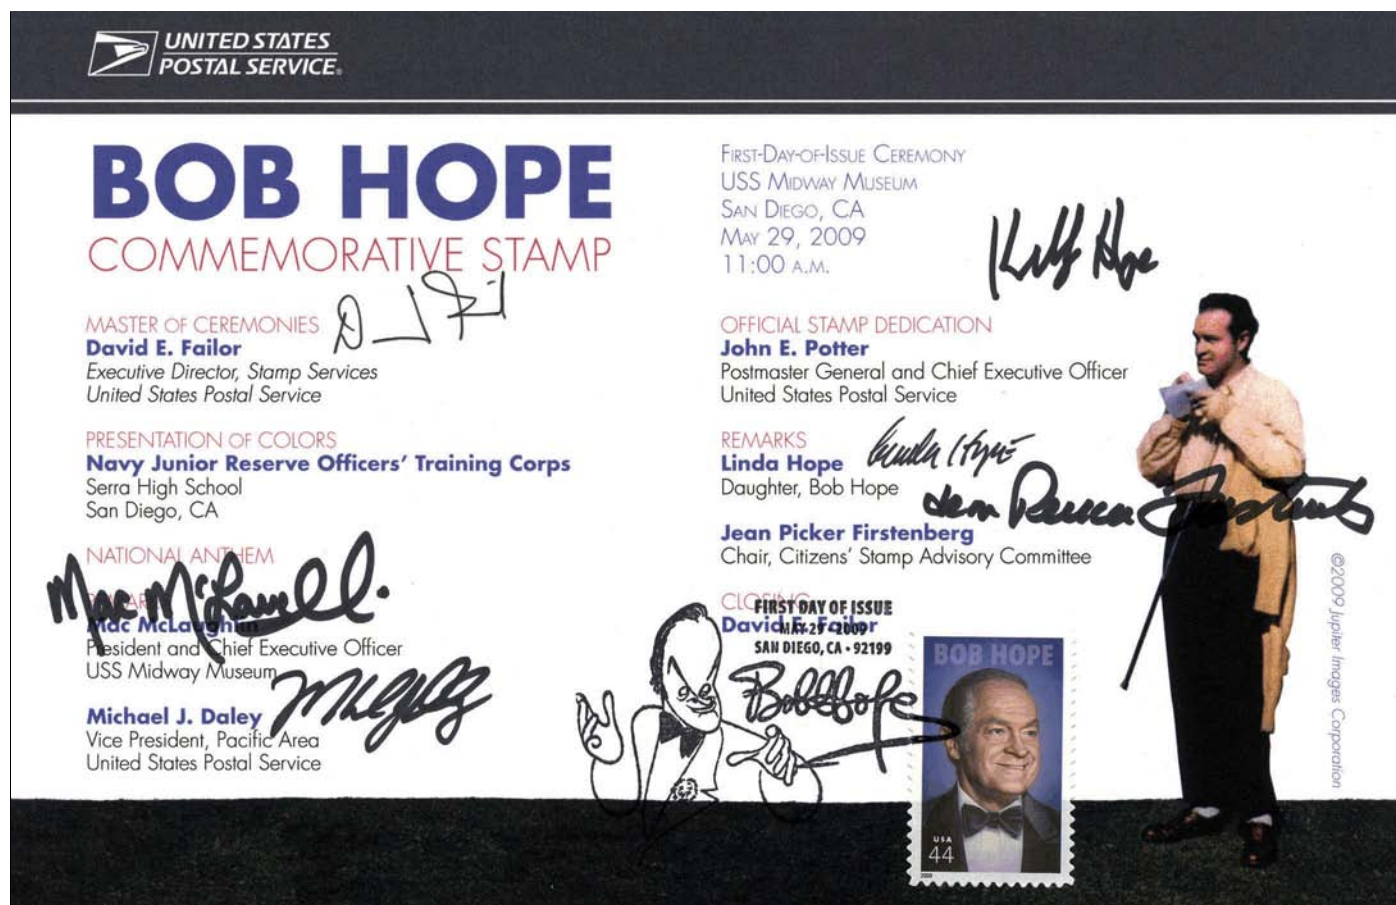 UNITED STATES
POSTAL SERVICE®
BOB HOPE
COMMEMORATIVE STAMP
MASTER OF CEREMONIES
David E. Failor
Executive Director, Stamp Services
United States Postal Service
PRESENTATION OF COLORS
Navy Junior Reserve Officers' Training Corps
Serra High School
San Diego, CA
NATIONAL ANTHEM
Mac McLaughlin
President and Chief Executive Officer
USS Midway Museum
Michael J. Daley
Vice President, Pacific Area
United States Postal Service
FIRST-DAY-OF-ISSUE CEREMONY
USS MIDWAY MUSEUM
SAN DIEGO, CA
MAY 29, 2009
11:00 A.M.
Hope
OFFICIAL STAMP DEDICATION
John E. Potter
Postmaster General and Chief Executive Officer
United States Postal Service
REMARKS
Linda Hope
Linda Hope
Daughter, Bob Hope
Jean Picker Firstenberg
Chair, Citizens' Stamp Advisory Committee
CLOSING
David E. Failor
FIRST DAY OF ISSUE
MAY 29 • 2009
SAN DIEGO, CA • 92199
Bob Hope
BOB HOPE
USA
44
2009
©2009 Jupiter Images Corporation